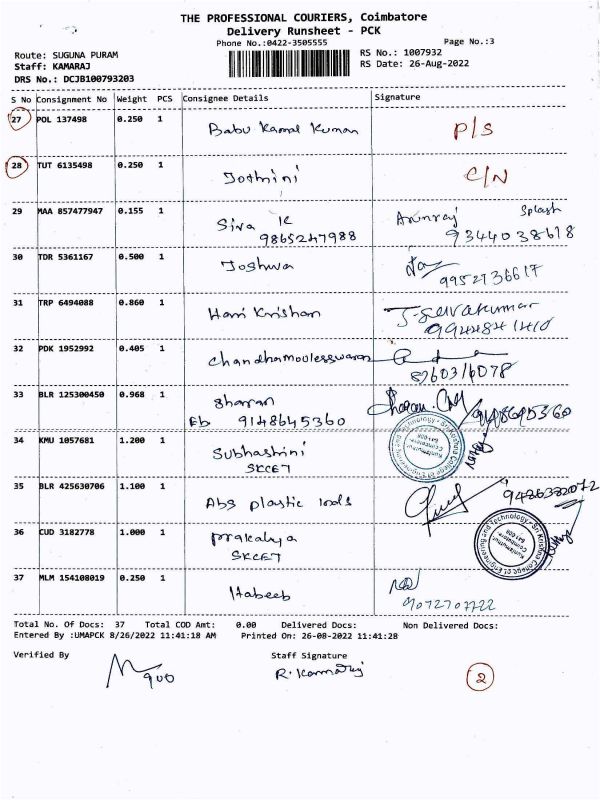 THE PROFESSIONAL COURIERS, Coimbatore
Delivery Runsheet - PCK
Phone No.:0422-3505555 Page No.:3
Route: SUGUNA PURAM RS No.: 1007932
Staff: KAMARAJ RS Date: 26-Aug-2022
DRS No.: DCJB100793203
S No Consignment No Weight PCS Consignee Details Signature
27 POL 137498 0.250 1 Babu Kamal Kumar P/S
28 TUT 6135498 0.250 1 Jothini C/N
29 MAA 857477947 0.155 1 Siva K Arunraj Splash
9865247988 9344038618
30 TDR 5361167 0.500 1 Joshua
9952736617
31 TRP 6494088 0.860 1 Hari Krishan J-Selvakumar
9448841410
32 PDK 1952992 0.405 1 Chandhamouleeswaran
8760316078
33 BLR 125300450 0.968 1 Sharan
Eb 9148645360
34 KMU 1057681 1.200 1 Subhashini
SKCET
Sri Krishna College of Engineering and Technology
Kuniamuthur
Coimbatore
641-008
35 BLR 425630706 1.100 1 Abs plastic 9486382072
36 CUD 3182778 1.000 1 Prakalya
SKCET
Sri Krishna College of Engineering and Technology
Kuniamuthur
Coimbatore
641-008
37 MLM 154108019 0.250 1 Habeeb
9072707722
Total No. Of Docs: 37 Total COD Amt: 0.00 Delivered Docs: Non Delivered Docs:
Entered By :UMAPCK 8/26/2022 11:41:18 AM Printed On: 26-08-2022 11:41:28
Verified By Staff Signature
900 R. Kamaraj 2